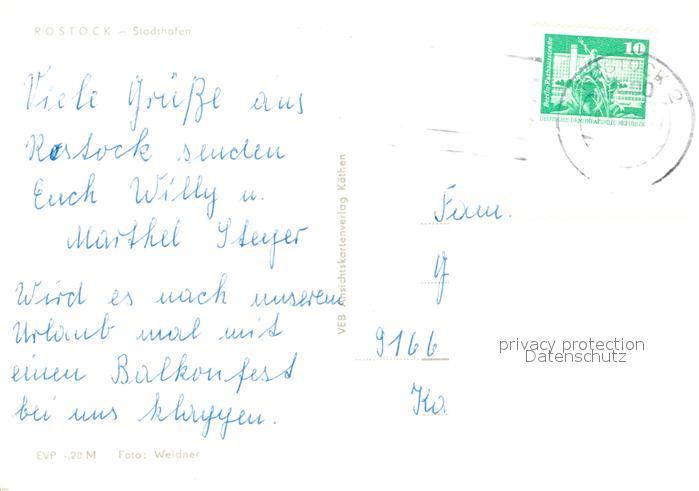 ROSTOCK – Stadthafen
Viele Grüße aus
Rostock senden
Euch Willy u.
Marthel Steyer
Wird es nach unserem
Urlaub mal mit
einen Balkonfest
bei uns klappen.
EVP -,20 M Foto: Weidner
VEB Ansichtskartenverlag Köthen
10
Berlin, Rathausstraße
DEUTSCHE DEMOKRATISCHE REPUBLIK
ROSTOCK 2
Fam.
9166
Ka
privacy protection
Datenschutz